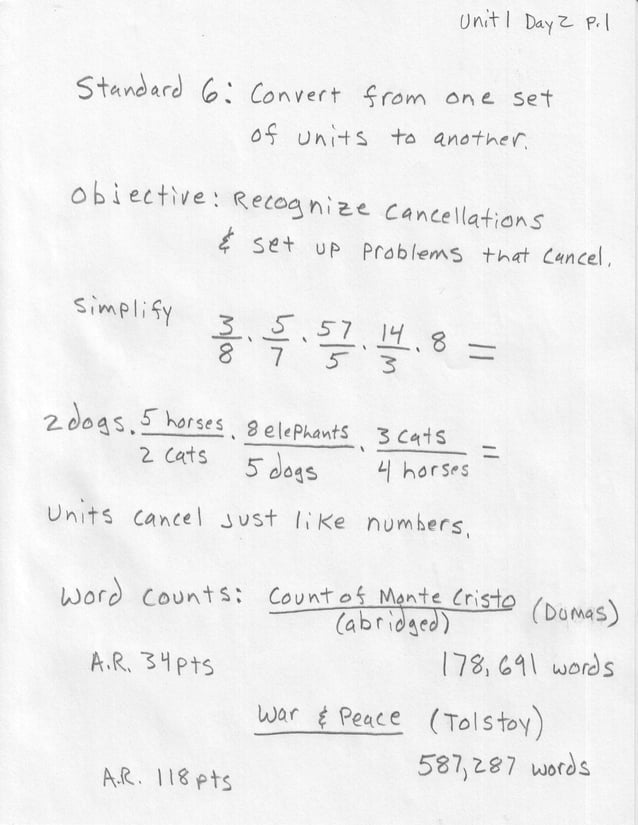 Unit 1 Day 2 p.1
Standard 6: Convert from one set
of units to another.
Objective: Recognize Cancellations
& set up problems that cancel.
Simplify 3/8 · 5/7 · 57/5 · 14/3 · 8 =
2 dogs · 5 horses/2 cats · 8 elephants/5 dogs · 3 cats/4 horses =
Units cancel just like numbers.
Word Counts: Count of Monte Cristo (Dumas)
(abridged)
A.R. 34pts 178,691 words
War & Peace (Tolstoy)
587,287 words
A.R. 118pts